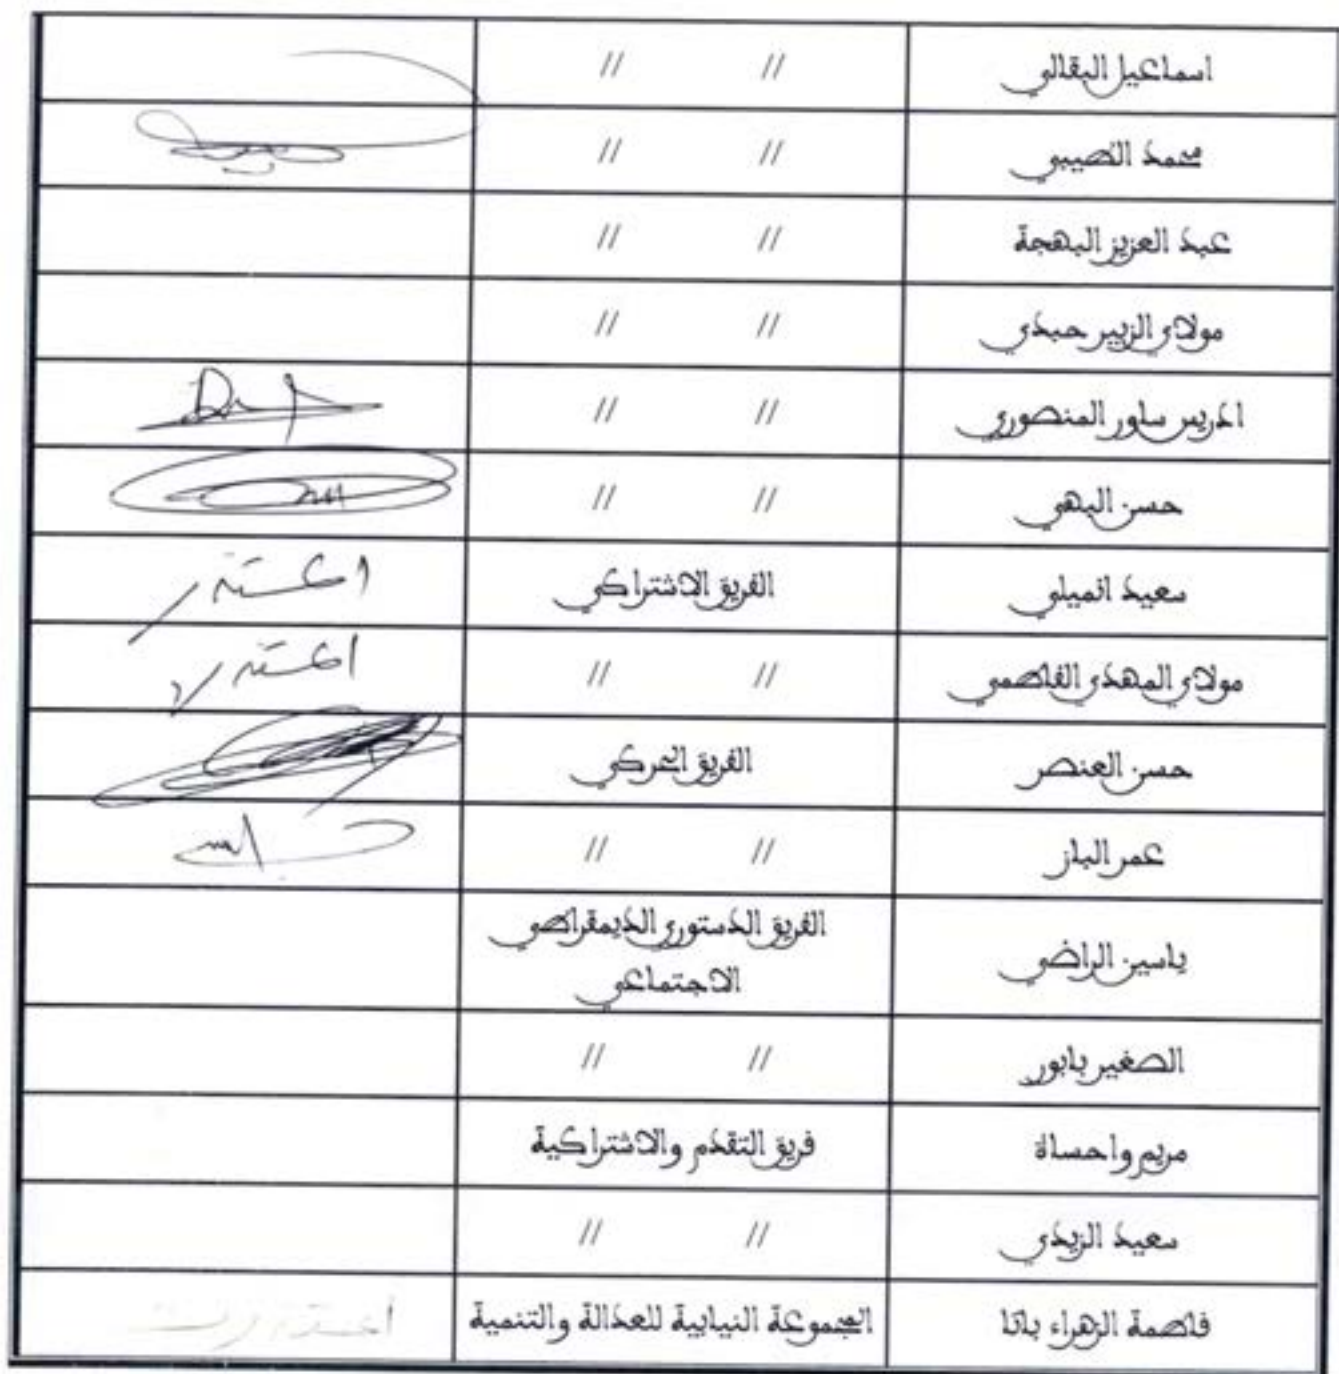 اسماعيل البقالي // //
محمد الصيبي // //
عبد العزيز البهجة // //
مولاي الزبير حبدي // //
ادريس ساور المنصوري // //
حسن البهي // //
سعيد انميلي الفريق الاشتراكي اعتذر
مولاي المهدي الفاطمي // // اعتذر
حسن العنصر الفريق الحركي
عمر الباز // //
ياسين الراضي الفريق الدستوري الديمقراطي
الاجتماعي
الصغير بابور // //
مريم واحساة فريق التقدم والاشتراكية
سعيد الزيدي // //
فاطمة الزهراء باتا المجموعة النيابية للعدالة والتنمية اعتذرت